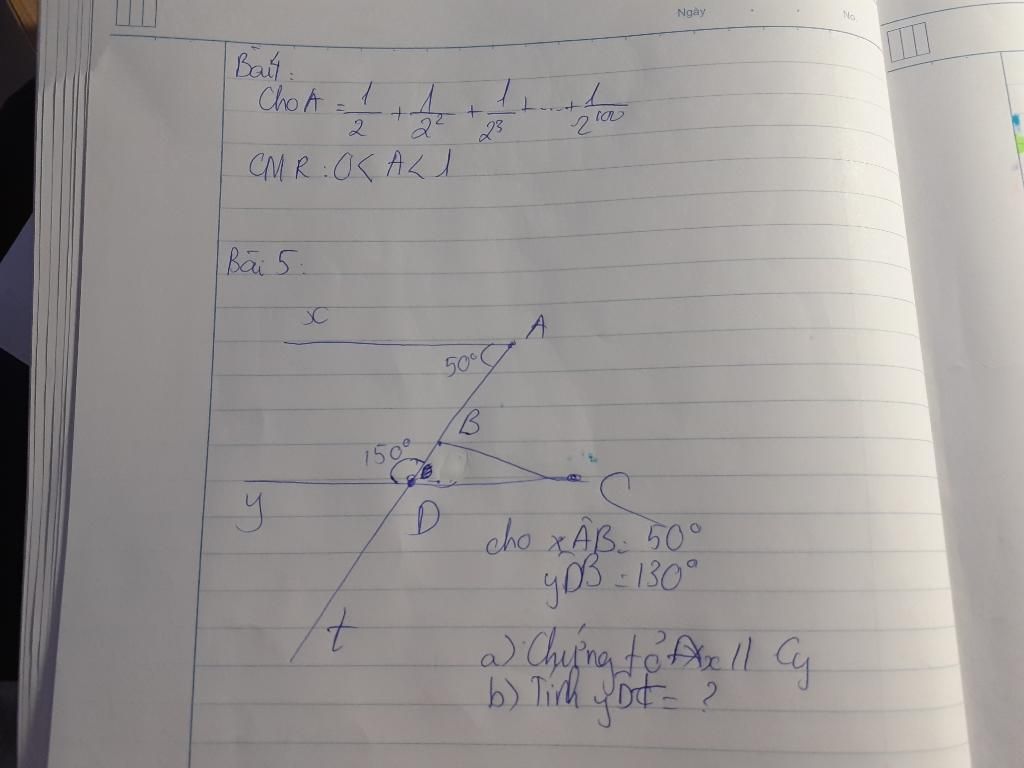 Ngày
No.
Bài 4:
Cho A = 1/2 + 1/2² + 1/2³ + ... + 1/2¹⁰⁰
CMR : 0 < A < 1
Bài 5:
x
A
50°
B
150°
y
D
C
cho xÂB = 50°
yD̂B = 130°
t
a) Chứng tỏ Ax // Cy
b) Tính yD̂t = ?